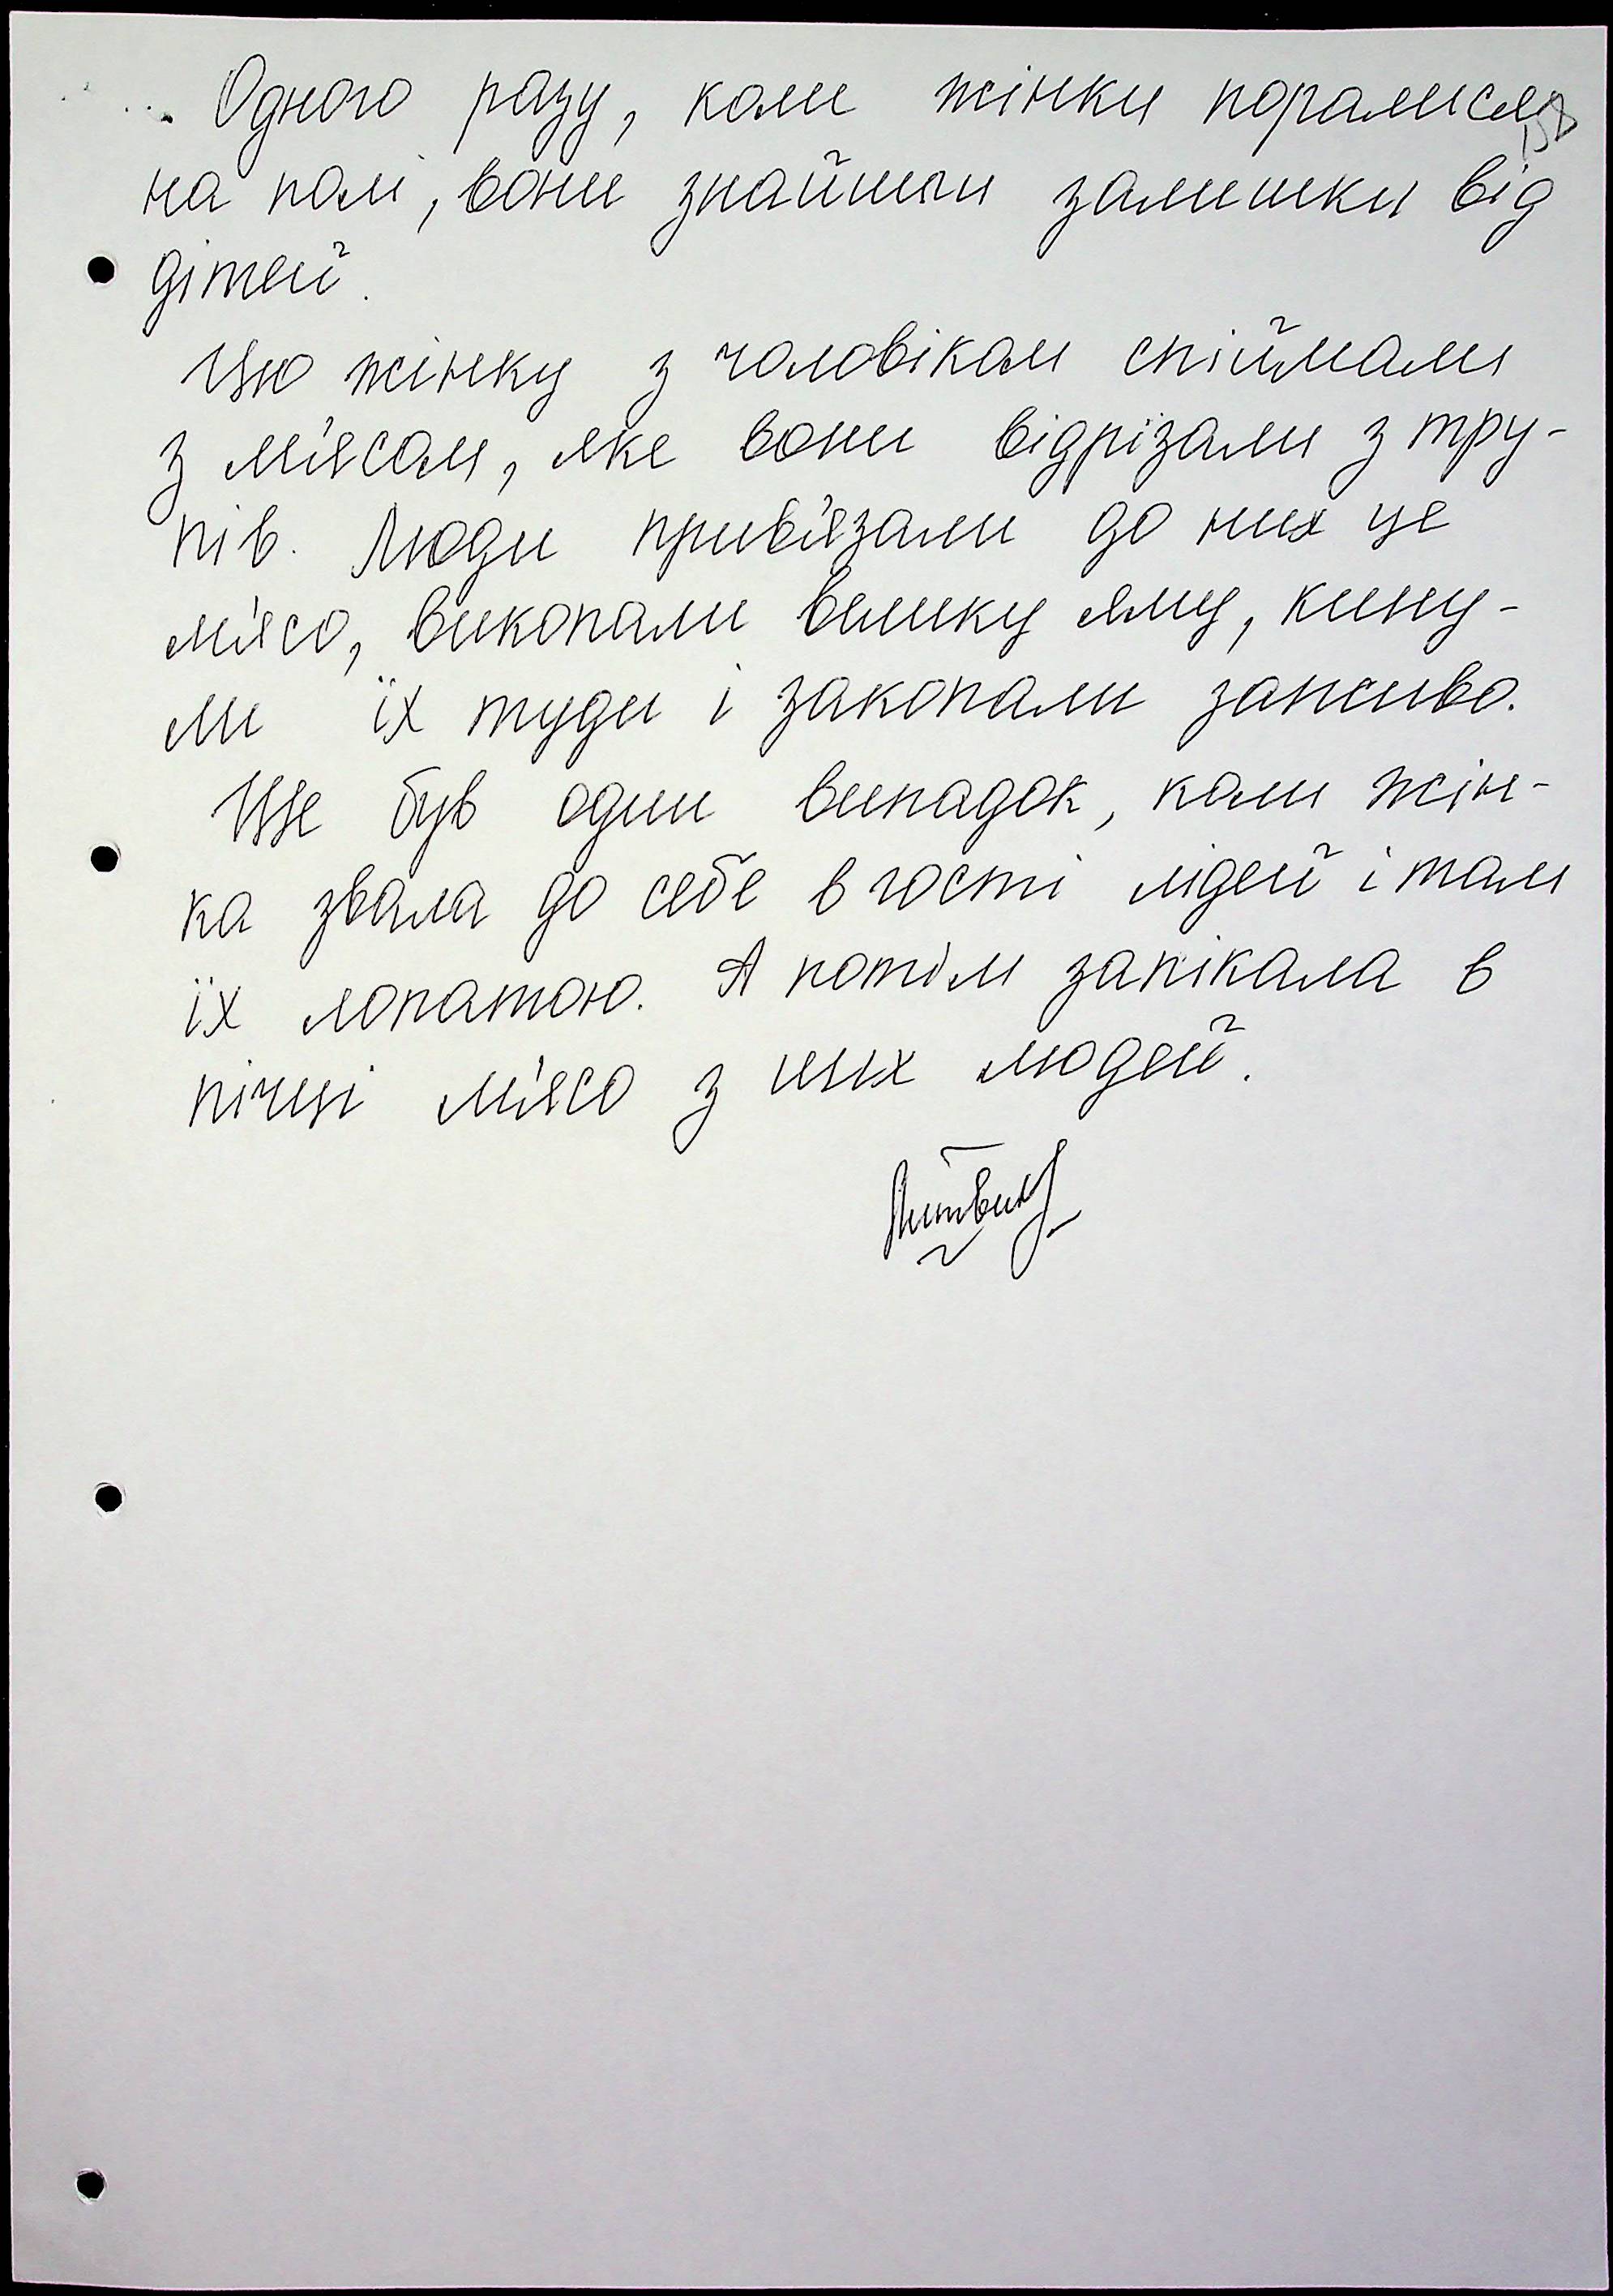 Одного разу, коли жінки поралися
158
на полі, вони знайшли залишки від
дітей.
Цю жінку з чоловіком спіймали
з м'ясом, яке вони відрізали з тру-
пів. Люди прив'язали до них це
м'ясо, викопали велику яму, кину-
ли їх туди і закопали заживо.
Ще був один випадок, коли жін-
ка звала до себе в гості лідей і там
їх лопатою. А потім запікала в
пічці м'ясо з цих людей.